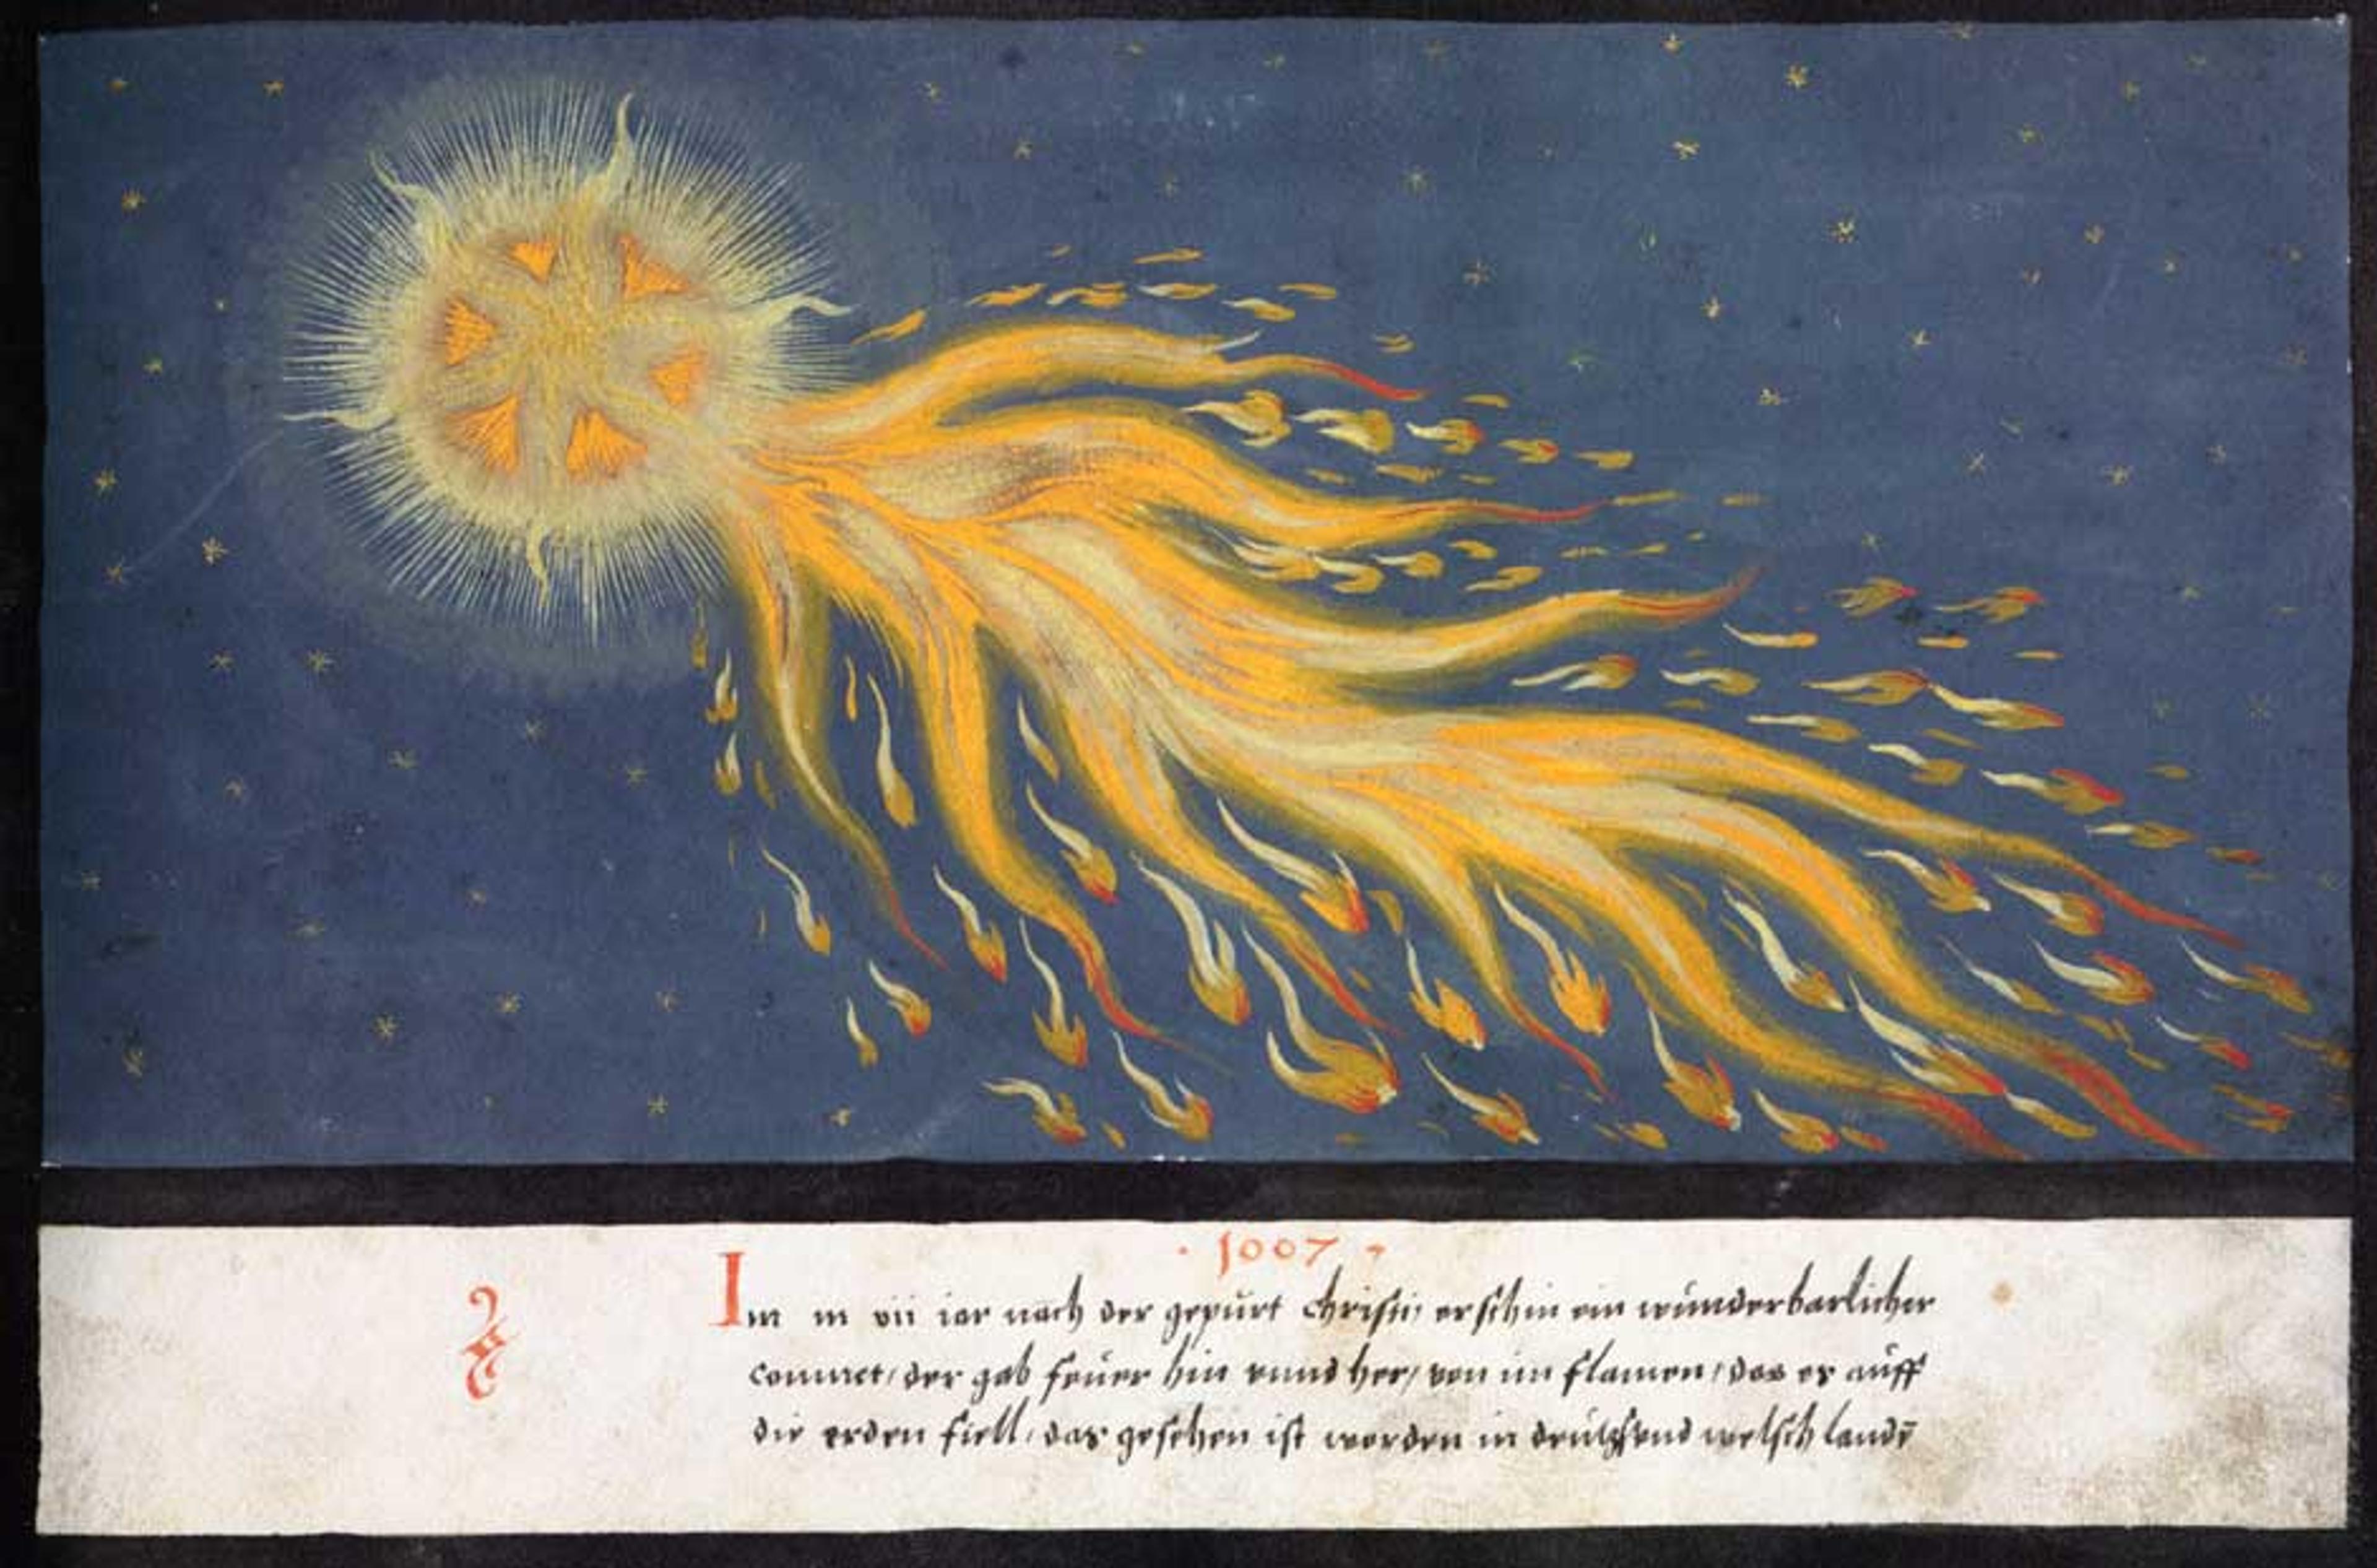 · 1007 ·
Im m vii iar nach der gepurt Christi erschin ein wunderbarlicher
commet / der gab feuer hin unnd her / von im flamen / das er auff
die erden fiell / das gesehen ist worden in deutzsch und welsch landē